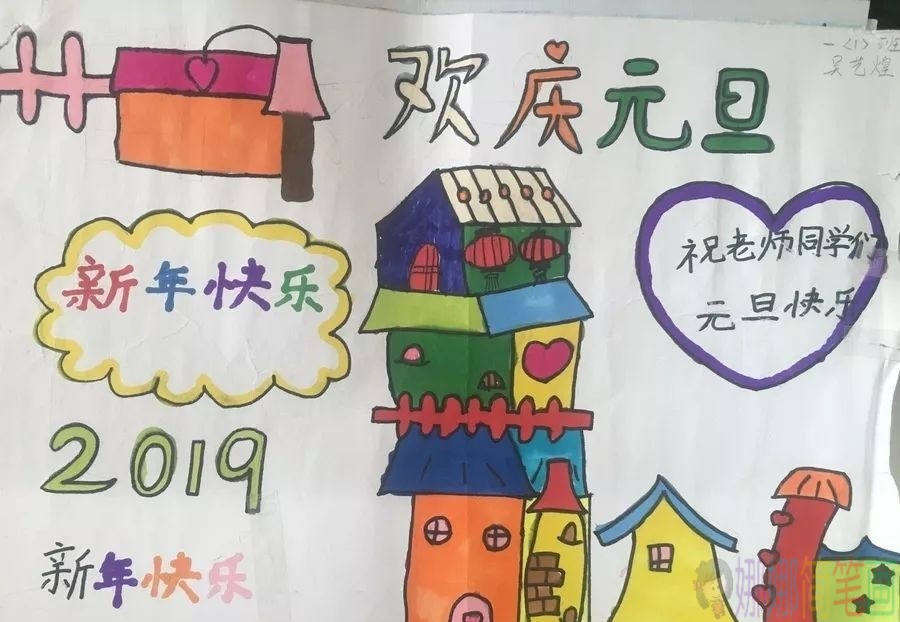 欢庆元旦
一〈1〉班
吴艺煌
新年快乐
祝老师同学们
元旦快乐
2019
新年快乐
娜娜简笔画